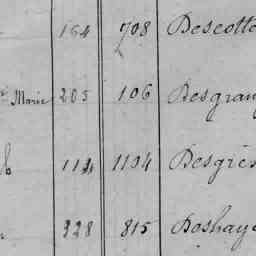 164 708 Descotte
Marie 205 106 Desgran
114 1194 Desgrés
928 815 Deshaye